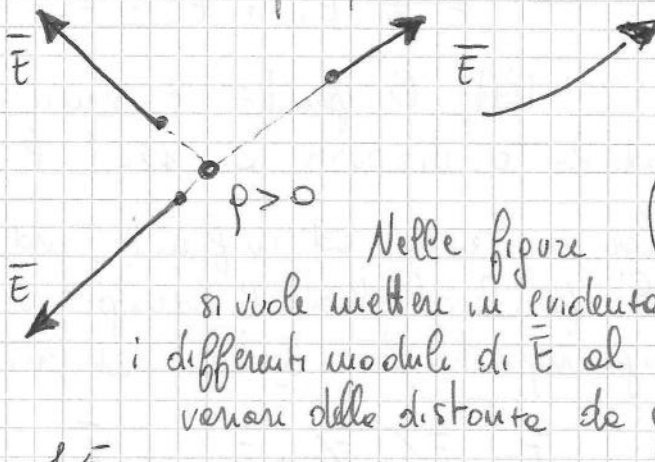 E̅
E̅
ρ > 0
E̅
Nelle figure
si vuole mettere in evidenza
i differenti moduli di E̅ al
variare della distanza da